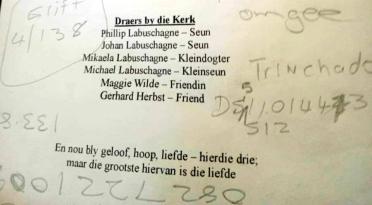 omgee
4/138
Draers by die Kerk
Phillip Labuschagne – Seun
Johan Labuschagne – Seun
Mikaela Labuschagne – Kleindogter
Michael Labuschagne – Kleinseun
Maggie Wilde – Friendin
Gerhard Herbst – Friend
Trinchado
512
En nou bly geloof, hoop, liefde – hierdie drie;
maar die grootste hiervan is die liefde